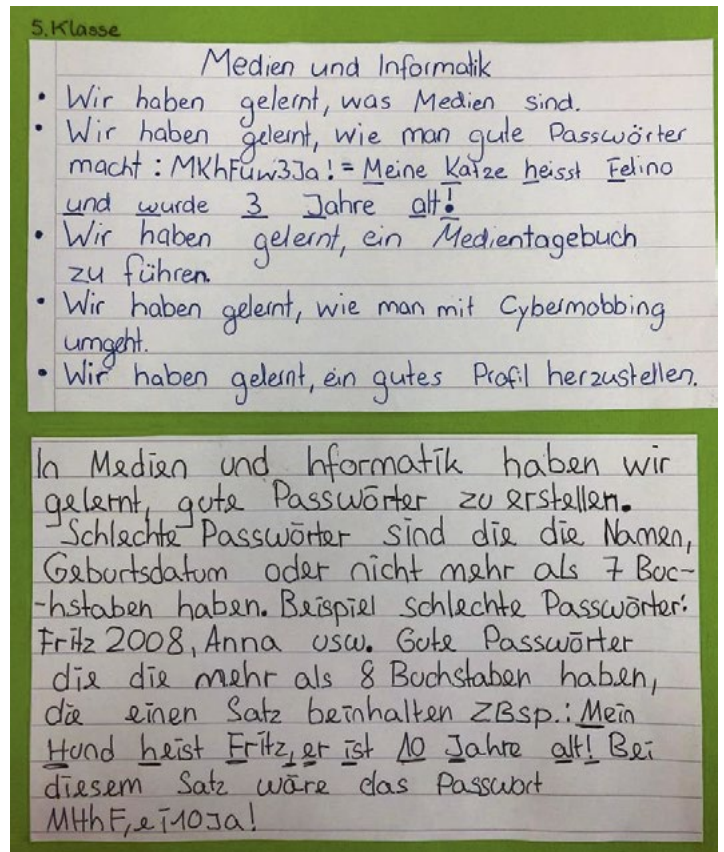 5. Klasse
Medien und Informatik
• Wir haben gelernt, was Medien sind.
• Wir haben gelernt, wie man gute Passwörter
macht : MKhFuw3Ja! = Meine Katze heisst Felino
und wurde 3 Jahre alt!
• Wir haben gelernt, ein Medientagebuch
zu führen.
• Wir haben gelernt, wie man mit Cybermobbing
umgeht.
• Wir haben gelernt, ein gutes Profil herzustellen.
In Medien und Informatik haben wir
gelernt, gute Passwörter zu erstellen.
Schlechte Passwörter sind die die Namen,
Geburtsdatum oder nicht mehr als 7 Buc-
-hstaben haben. Beispiel schlechte Passwörter:
Fritz 2008, Anna usw. Gute Passwörter
die die mehr als 8 Buchstaben haben,
die einen Satz beinhalten ZBsp.: Mein
Hund heist Fritz, er ist 10 Jahre alt! Bei
diesem Satz wäre das Passwort
MHhF,ei10Ja!